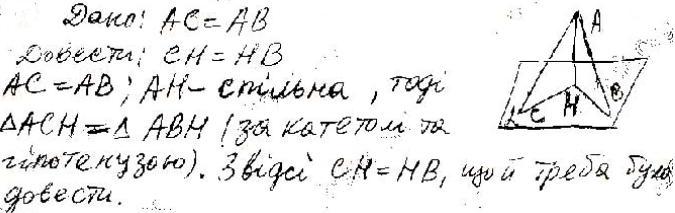 Дано: AC = AB
Довести: CH = HB
AC = AB; AH – спільна, тоді
ΔACH = Δ ABH (за катетом та
гіпотенузою). Звідси CH = HB, що й треба було
довести.
A
C
H
B